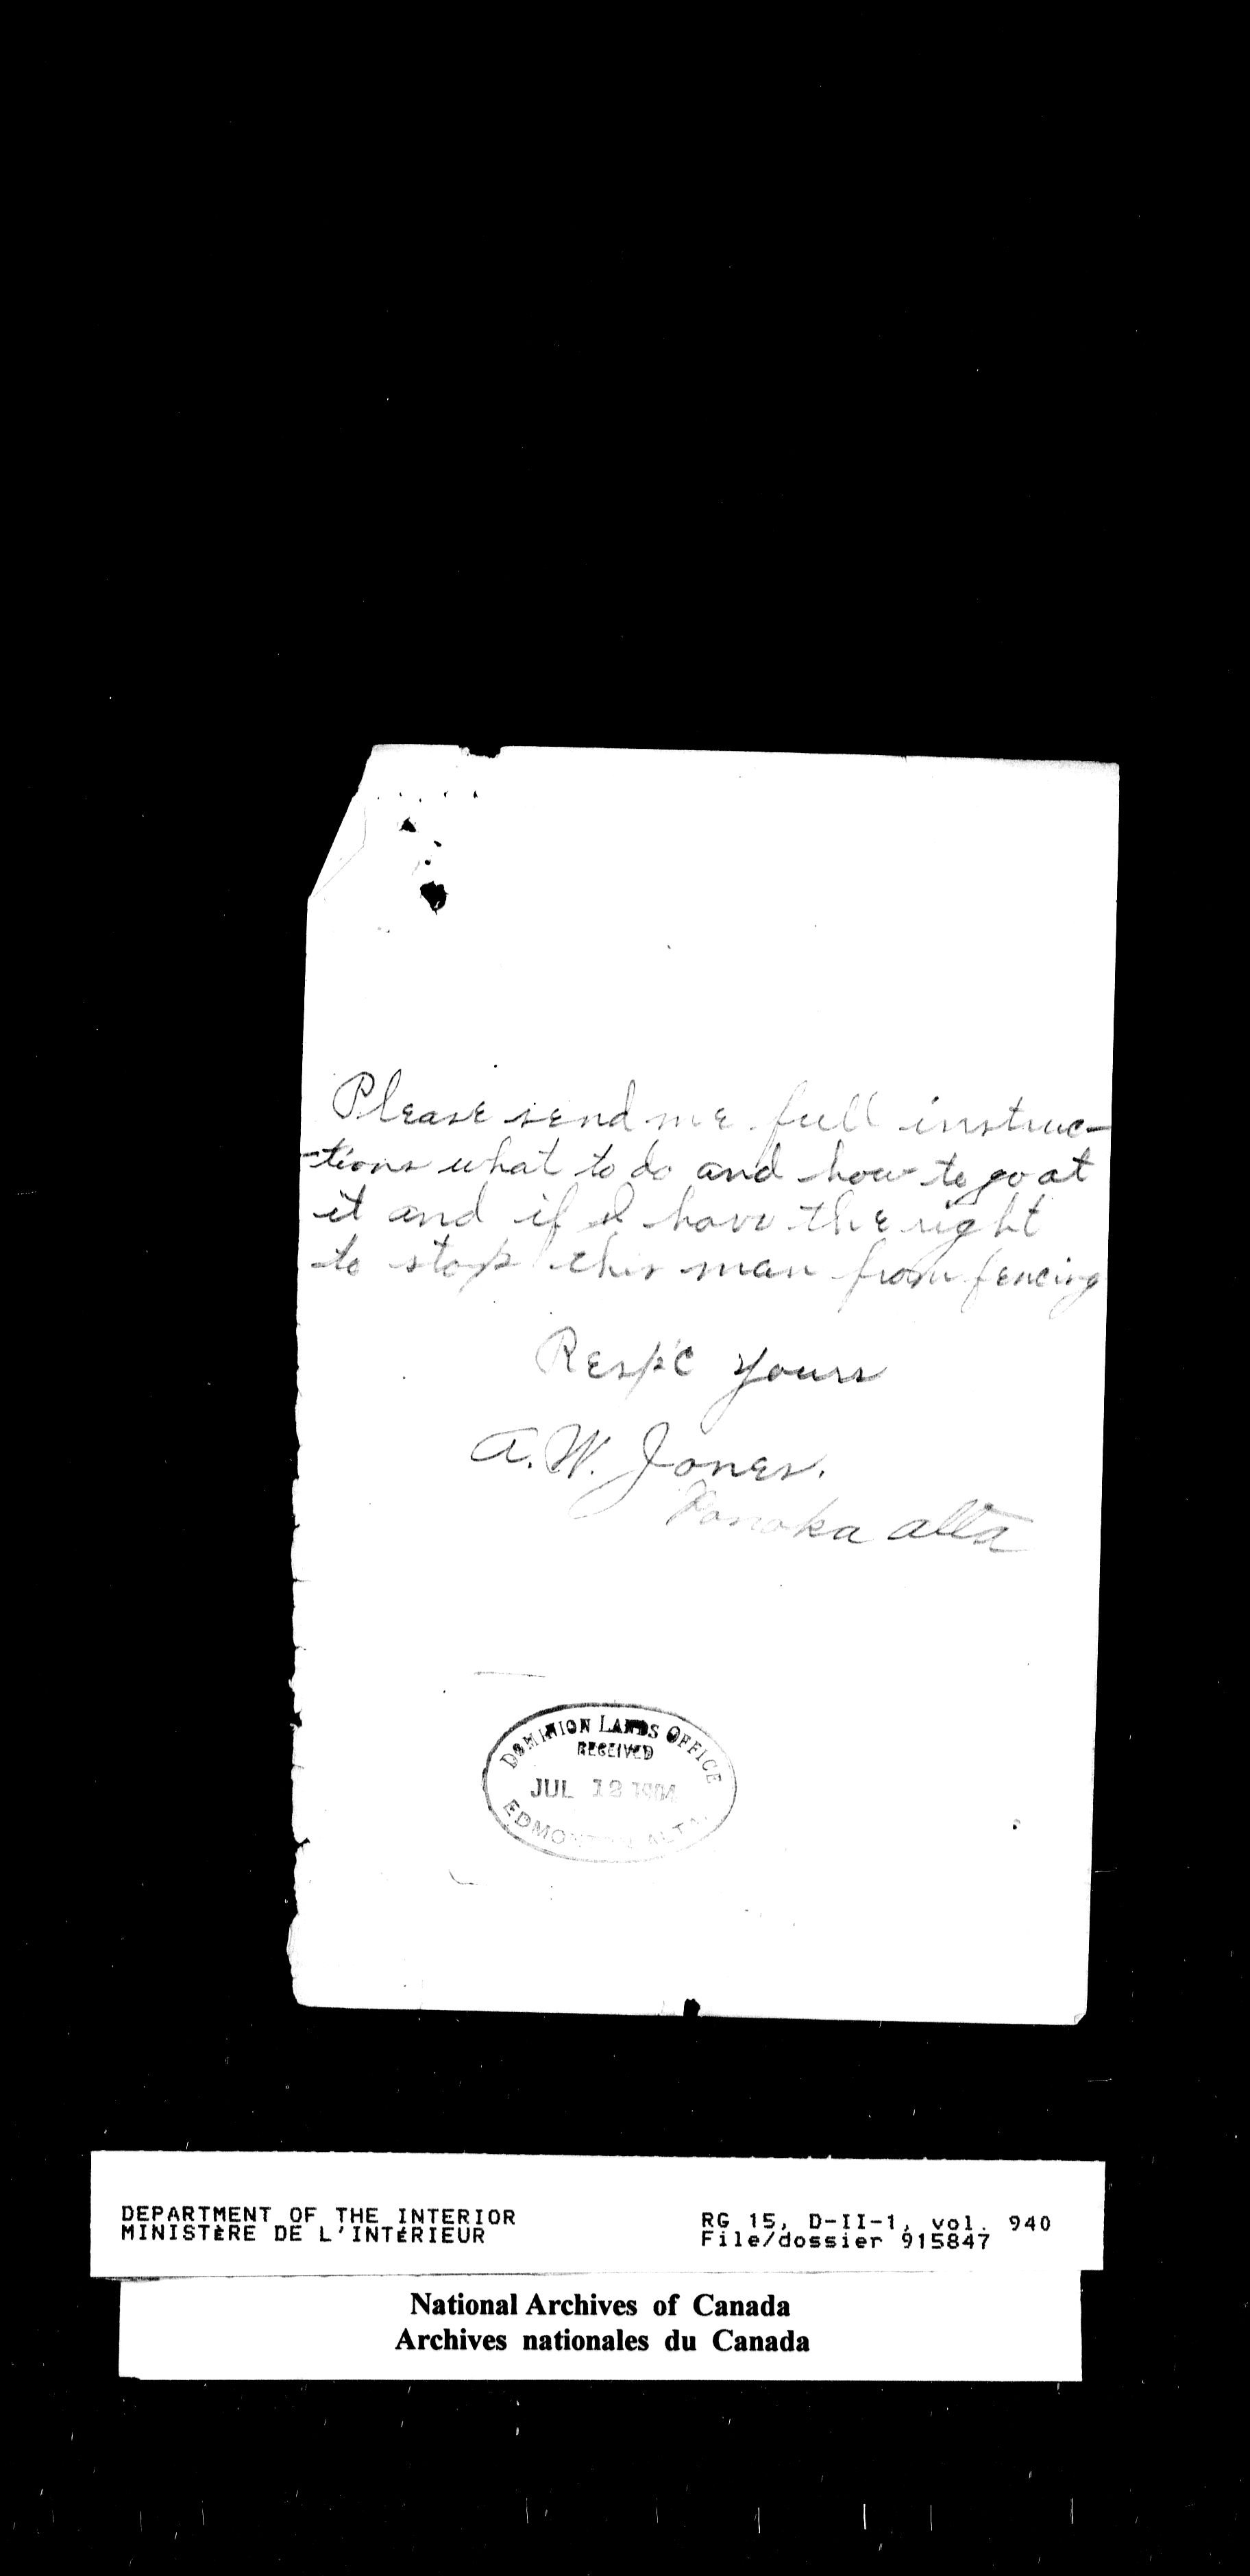 Please send me full instruc-
-tions what to do and how to go at
it and if I have the right
to stop this man from fencing
Resp'c yours
A. W. Jones.
Ponoka Alta
DOMINION LANDS OFFICE
RECEIVED
JUL 18 1904
EDMONTON ALTA.
DEPARTMENT OF THE INTERIOR
MINISTÈRE DE L'INTÉRIEUR
RG 15, D-II-1, vol. 940
File/dossier 915847
National Archives of Canada
Archives nationales du Canada